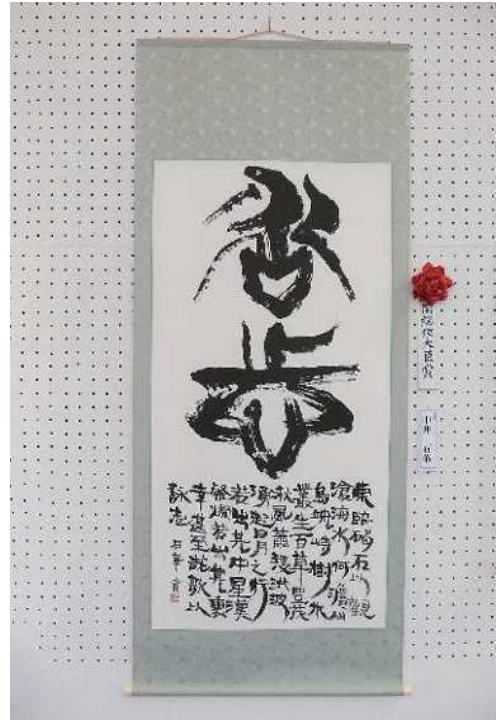 步
東臨碣石以觀
滄海水何澹々山
島竦峙樹木
叢生百草豐茂
秋風蕭瑟洪波
湧起日月之行
若出其中星漢
燦爛若出其裏
幸甚至哉歌以
詠志 石華
閣総理大臣賞
石華